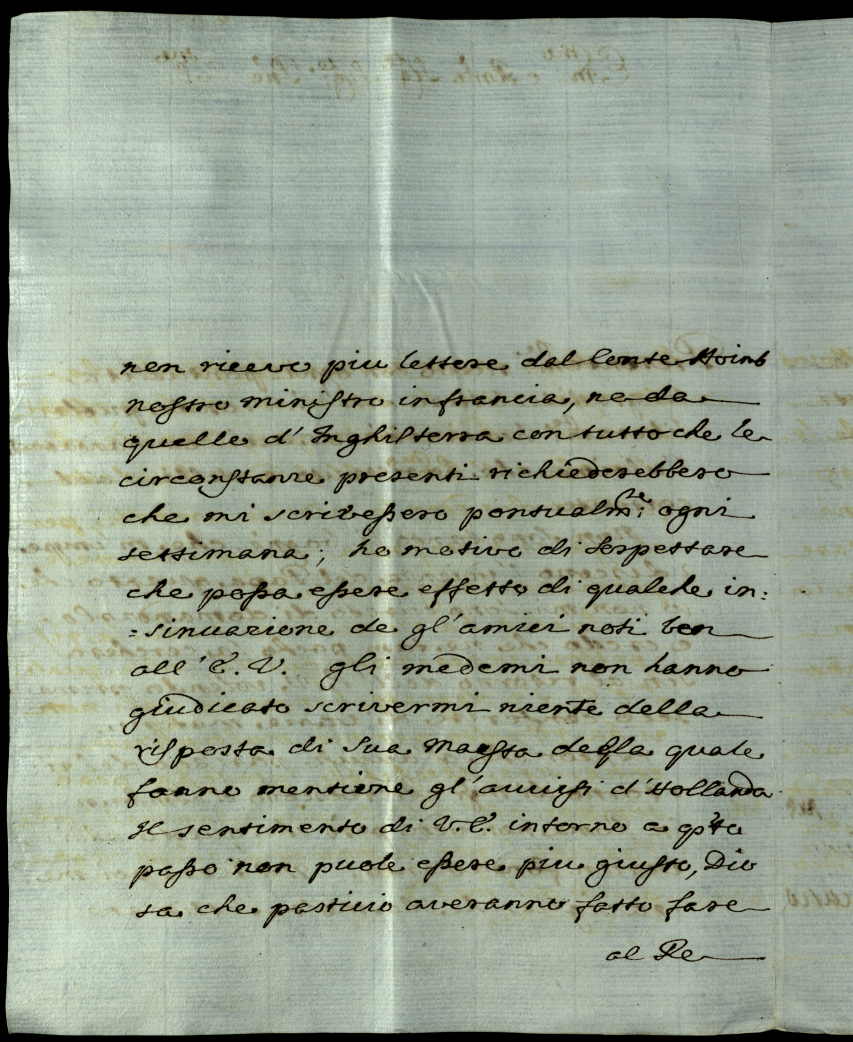 non ricevo piu lettere dal Conte Hoimb
nostro ministro in francia, ne da
quelle d'Inghilterra con tutto che le
circonstanze presenti richiederebbero
che mi scrivessero pontualm:te ogni
settimana; ho motivo di sospettare
che possa essere effetto di qualche in:
=sinuazione de gl'amici noti ben
all'E. V. gli medemi non hanno
giudicato scrivermi niente della
risposta di Sua Maesta della quale
fanno mentione gl'auuisi d'Hollanda
Il sentimento di V. E. intorno a q'sto
passo non puole essere piu giusto, Dio
sa che pasticio averanno fatto fare
al Re